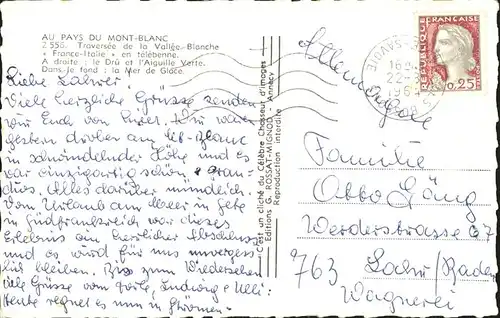 AU PAYS DU MONT-BLANC
Z 558. Traversée de la Vallée-Blanche
« France-Italie » en télébenne.
A droite : le Drû et l'Aiguille Verte.
Dans le fond : la Mer de Glace.
Liebe Lahrer!
Viele herzliche Grüsse senden
wir Euch von hier. Wir waren
gestern droben am
in schwindelnder Höhe und es
war einzigartig schön, gran-
dios. Alles darüber mündlich.
Vom Urlaub am Meer in
in Südfrankreich war dieses
Erlebnis ein herrlicher Abschluss
und es wird für uns unverges-
lich bleiben. Bis zum Wiedersehen
viele Grüsse von Ludwig
Heute regnet es nun in Strömen.
C'est un cliché du Célèbre Chasseur d'images
Editions G. ROSSAT-MIGNOD - Annecy
Reproduction interdite
REPUBLIQUE FRANÇAISE
0,25
16
22-
196
SAVOIE
Allemagne
Familie
Otto Gäng
Werderstrasse 67
763 Lahr/Baden
Wagnerei